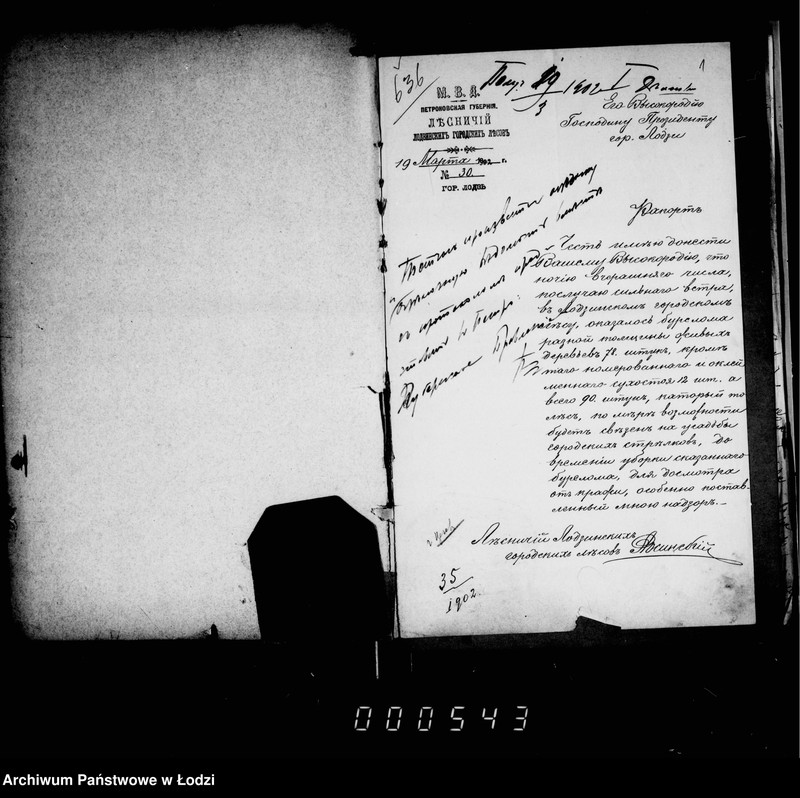 636
1
Получ. 19/3 1902 I
М. В. Д.
ПЕТРОКОВСКАЯ ГУБЕРНІЯ.
ЛѢСНИЧІЙ
ЛОДЗИНСКИХЪ ГОРОДСКИХЪ ЛѢСОВЪ
19 Марта 1902 г.
№ 30.
ГОР. ЛОДЗЬ
Его Высокородію
Господину Президенту
гор. Лодзи
Рапортъ
Честь имѣю донести
Вашему Высокородію, что
ночію вчерашняго числа,
послучаю сильнаго вѣтра,
въ Лодзинскомъ городскомъ
лѣсу, оказалось бурелома
разной толщины живыхъ
деревьевъ 78 штукъ, кромѣ
того номерованнаго и оклей
меннаго сухостоя 12 шт. а
всего 90. штукъ, который то
лѣсъ, по мѣрѣ возможности
будетъ свѣзенъ на усадьбы
городскихъ стрѣлковъ, до
времении уборки сказаннаго
бурелома, для досмотра
отъ крафи, особенно постав-
ленный мною надзоръ.
Лѣсничій Лодзинскихъ
городскихъ лѣсовъ
35
1902.
000543
Archiwum Państwowe w Łodzi